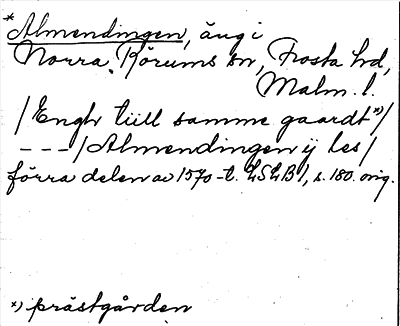 * Almendingen, äng i
Norra Rörums sn, Frosta hd,
Malm. l.
/Engh tiill samme gaardt *)/
---/Almendingen ij les/
förra delen av 1570-t. LSLB 1, s. 180. orig.
*) prästgården